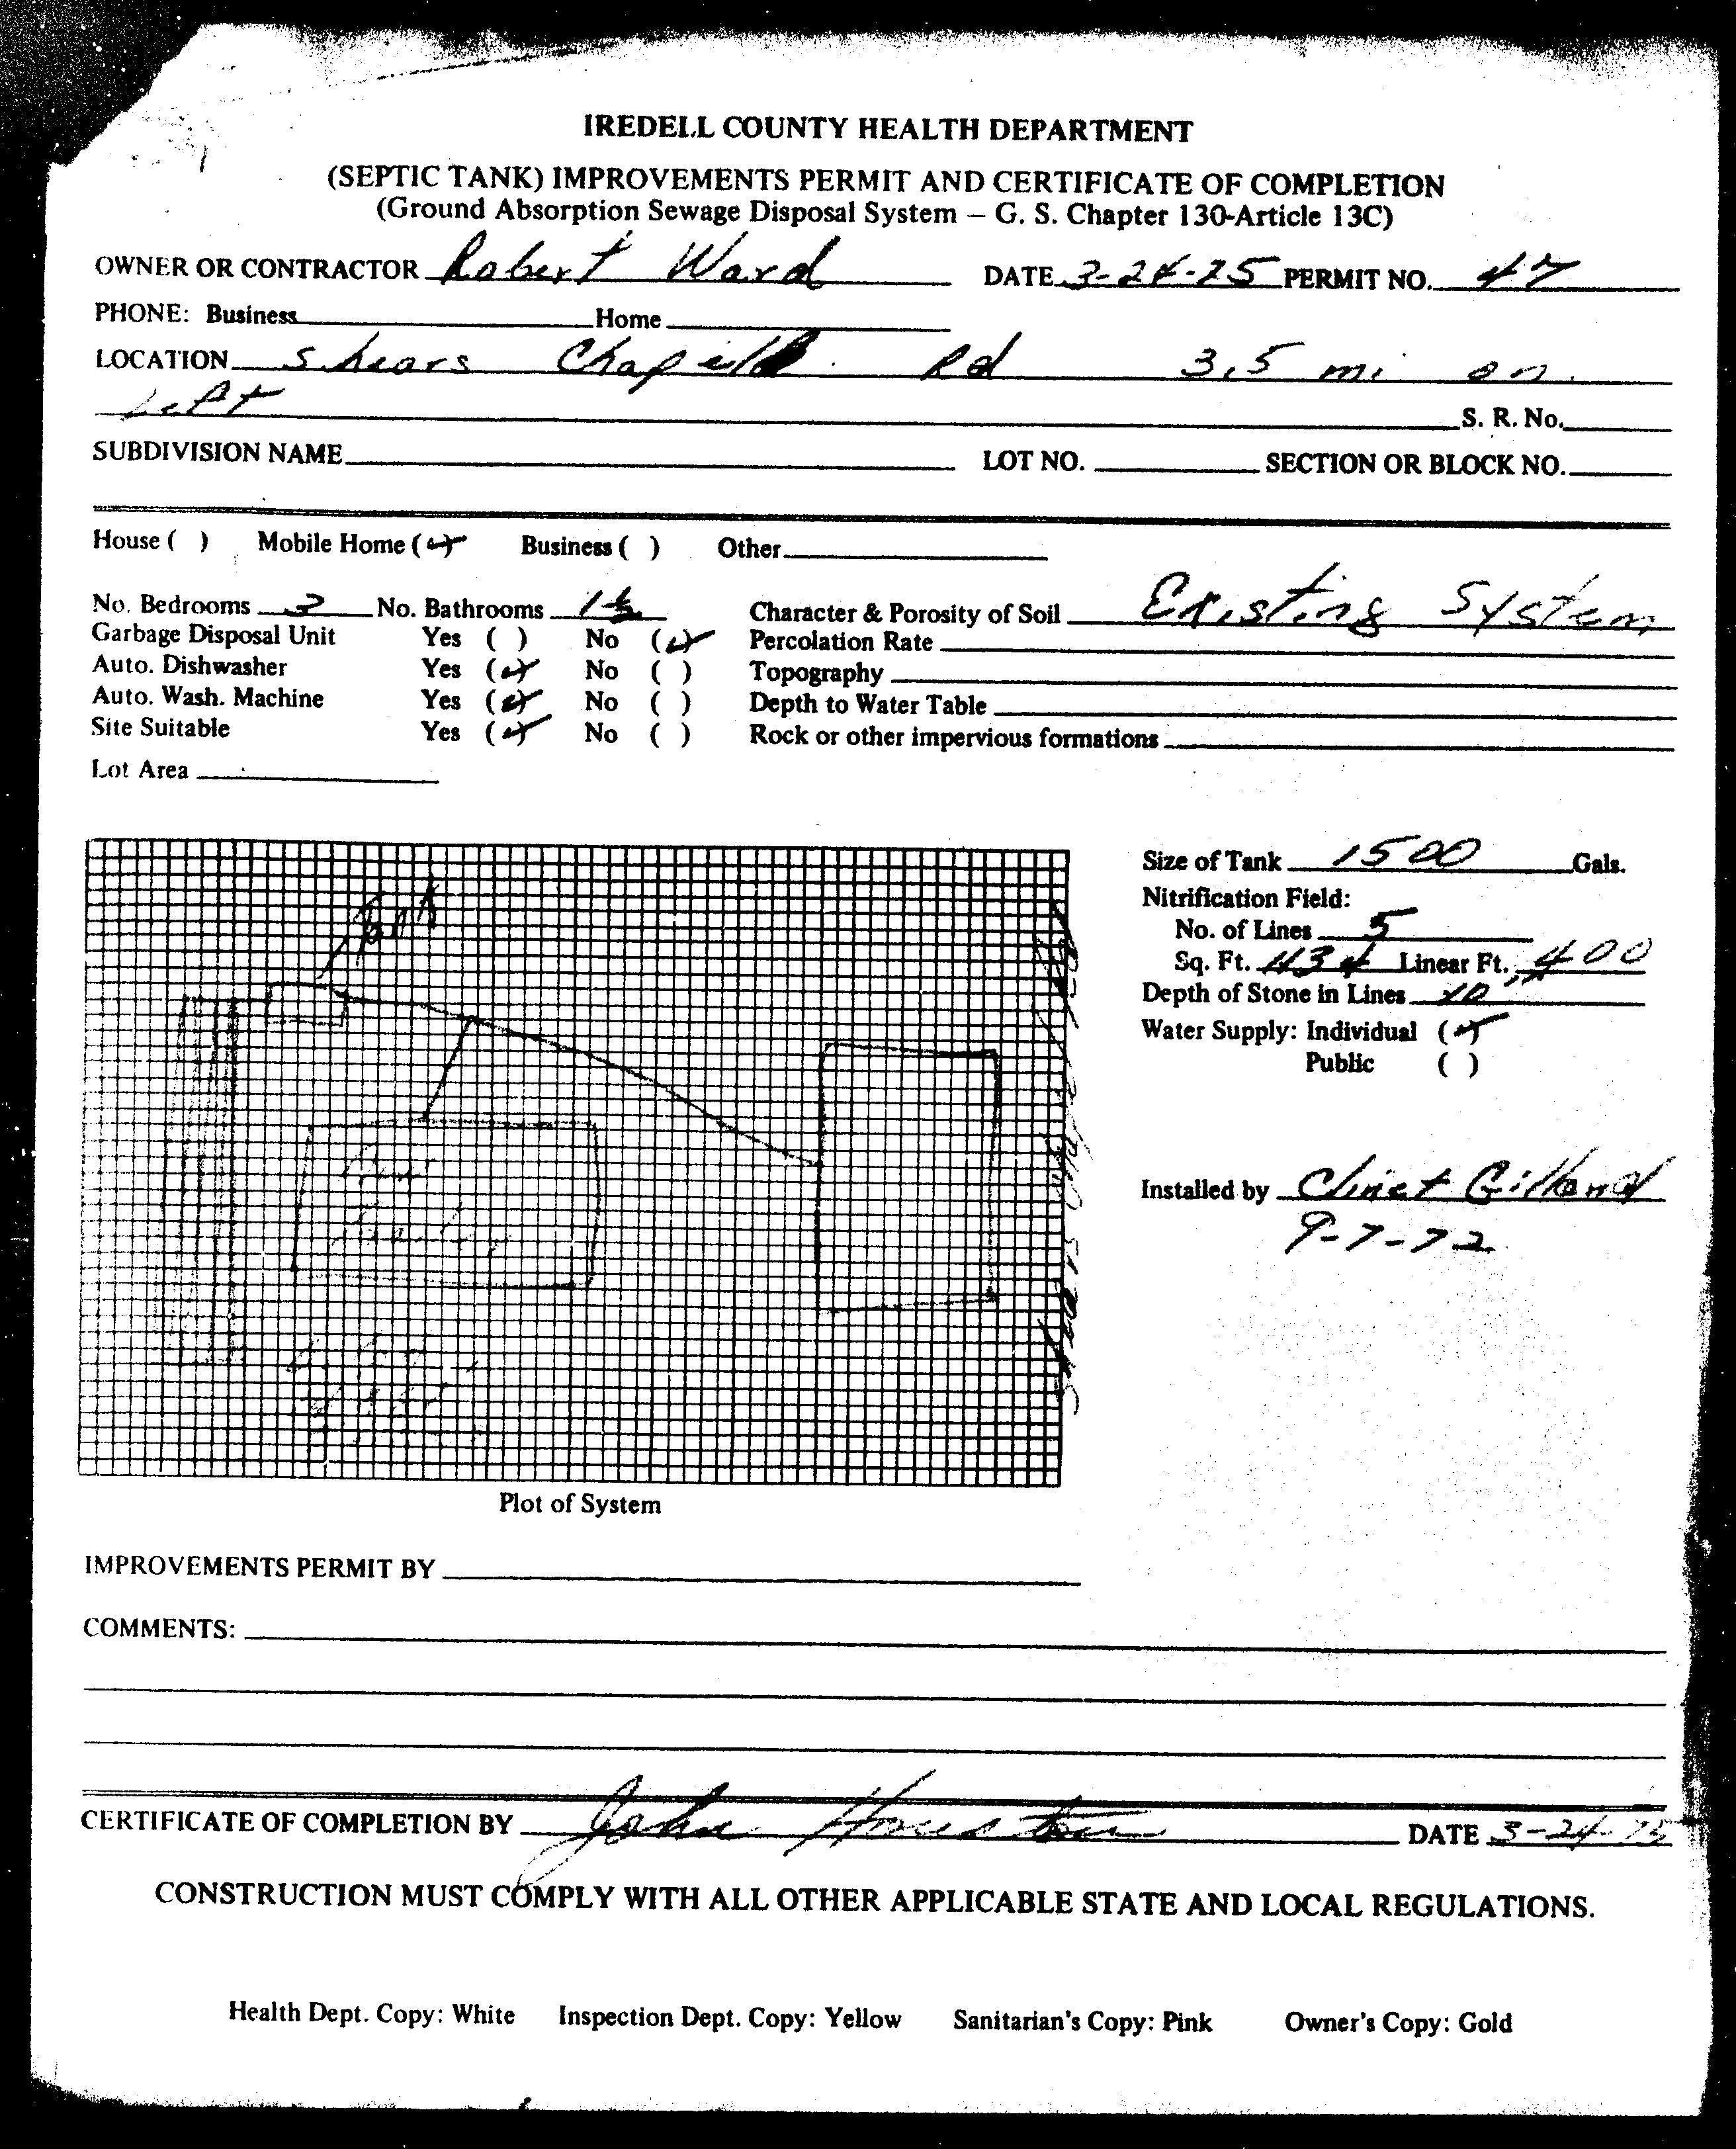 IREDELL COUNTY HEALTH DEPARTMENT
(SEPTIC TANK) IMPROVEMENTS PERMIT AND CERTIFICATE OF COMPLETION
(Ground Absorption Sewage Disposal System – G. S. Chapter 130-Article 13C)
OWNER OR CONTRACTOR Robert Ward DATE 3-24-75 PERMIT NO. 47
PHONE: Business Home
LOCATION Shears Chapel Rd 3.5 mi on
Left S. R. No.
SUBDIVISION NAME LOT NO. SECTION OR BLOCK NO.
House ( ) Mobile Home (✓) Business ( ) Other
No. Bedrooms No. Bathrooms 1½ Character & Porosity of Soil Existing System
Garbage Disposal Unit Yes ( ) No (✓) Percolation Rate
Auto. Dishwasher Yes (✓) No ( ) Topography
Auto. Wash. Machine Yes (✓) No ( ) Depth to Water Table
Site Suitable Yes (✓) No ( ) Rock or other impervious formations
Lot Area
Size of Tank 1500 Gals.
Nitrification Field:
No. of Lines 5
Sq. Ft. Linear Ft. 400
Depth of Stone in Lines 10"
Water Supply: Individual (✓)
Public ( )
Tank
Installed by Gilland
9-7-72
Plot of System
IMPROVEMENTS PERMIT BY
COMMENTS:
CERTIFICATE OF COMPLETION BY John Houston DATE 3-24-75
CONSTRUCTION MUST COMPLY WITH ALL OTHER APPLICABLE STATE AND LOCAL REGULATIONS.
Health Dept. Copy: White Inspection Dept. Copy: Yellow Sanitarian's Copy: Pink Owner's Copy: Gold